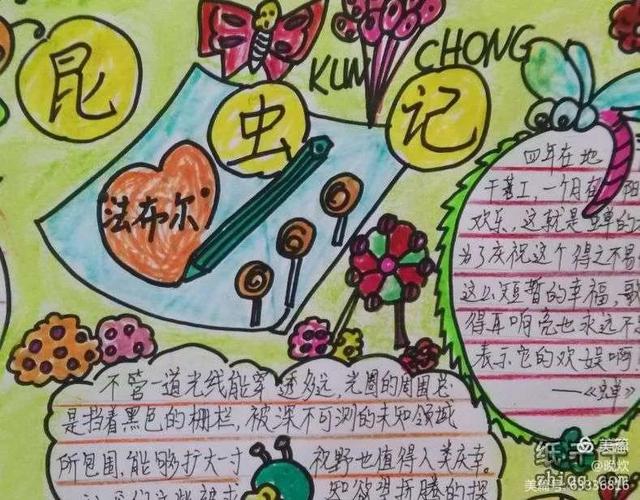 昆
虫
记
KUN CHONG
法布尔
四年在地
干苦工,一个月在
欢乐,这就是蝉的
为了庆祝这个得之不易
这么短暂的幸福,歌
得再响亮也永远不
表示它的欢娱啊
——《蝉》
不管一道光线能穿透多远,光圈的周围总
是挡着黑色的栅栏,被深不可测的未知领域
所包围,能够扩大一寸 视野也值得人类庆幸。
美篇